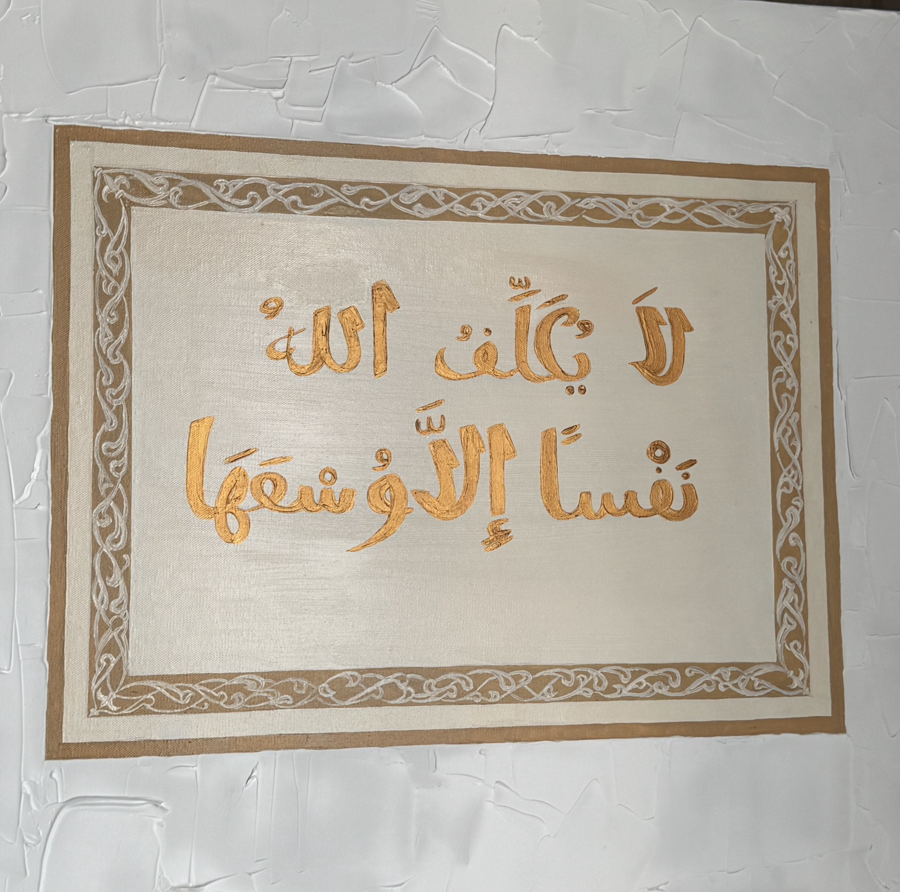 لَا يُكَلِّفُ اللهُ
نَفْسًا إِلَّا وُسْعَهَا